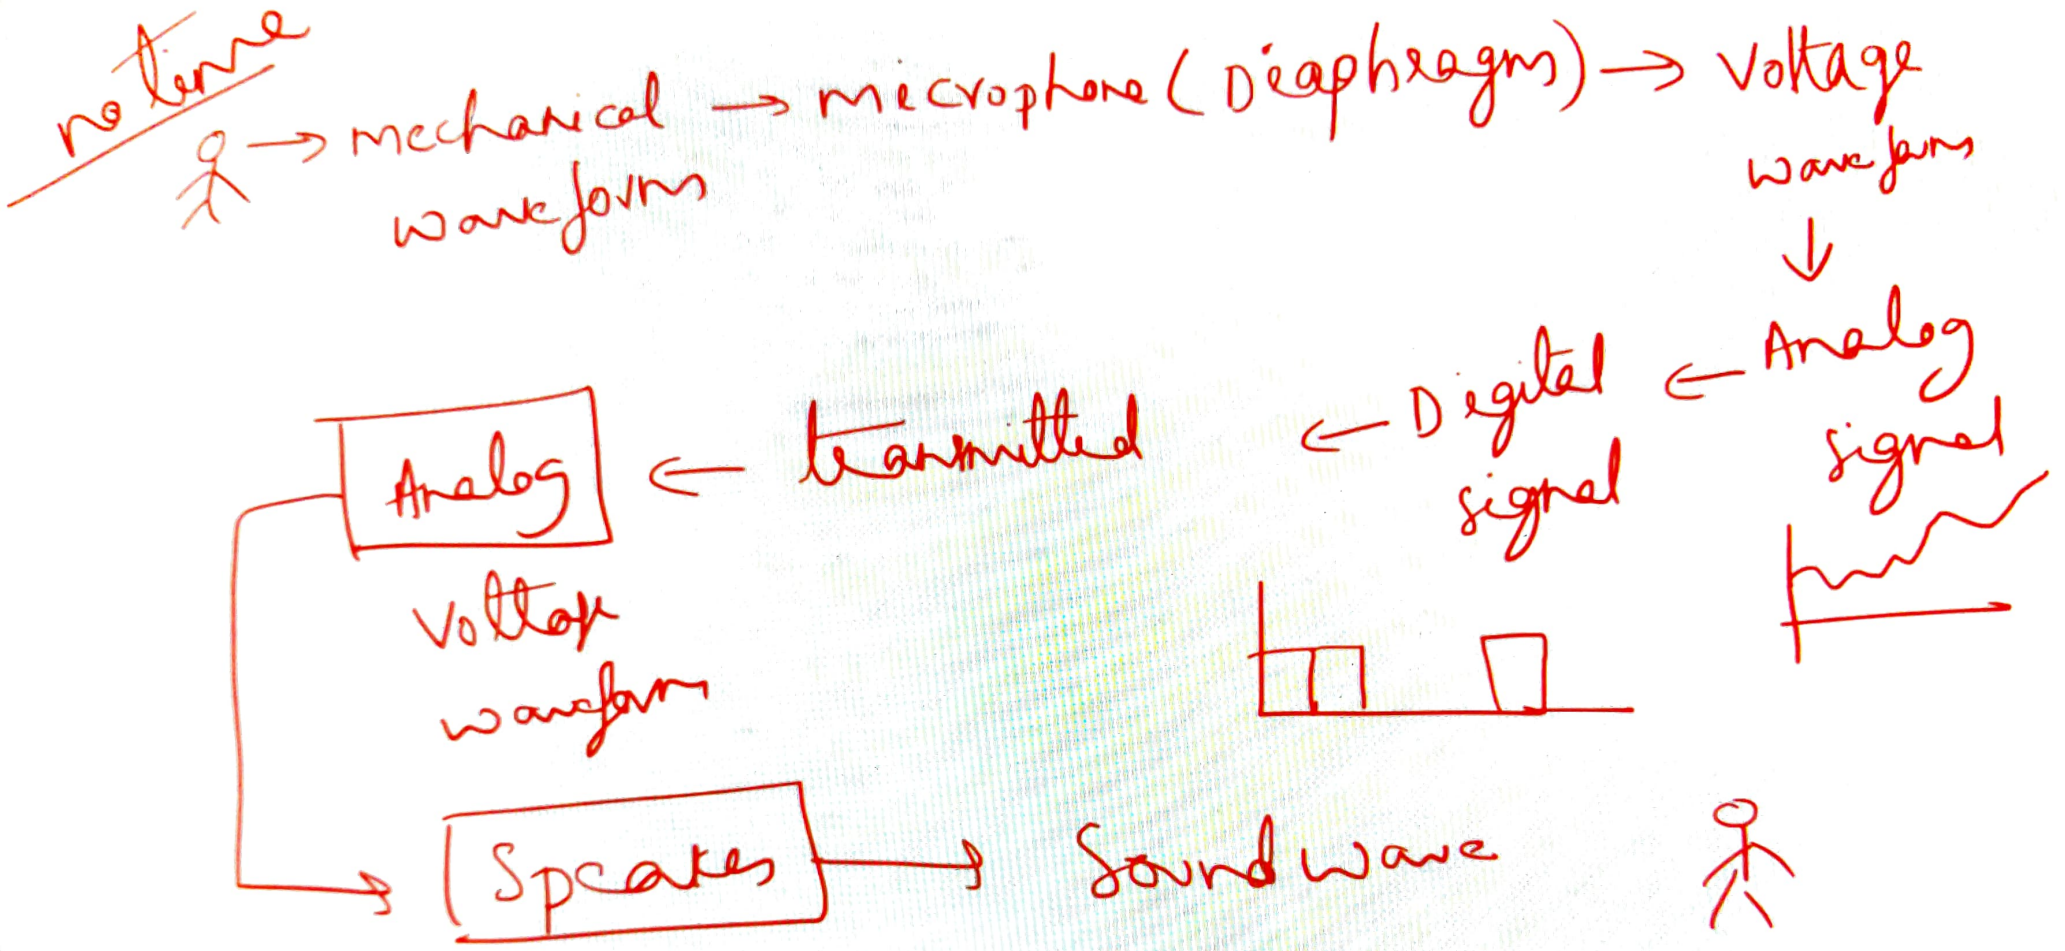 no time
→ mechanical → microphone (Diaphragm) → Voltage
waveform
waveform
↓
Analog
signal
← Digital ←
signal
← transmitted
Analog ←
Voltage
waveform
Speaker → Sound wave